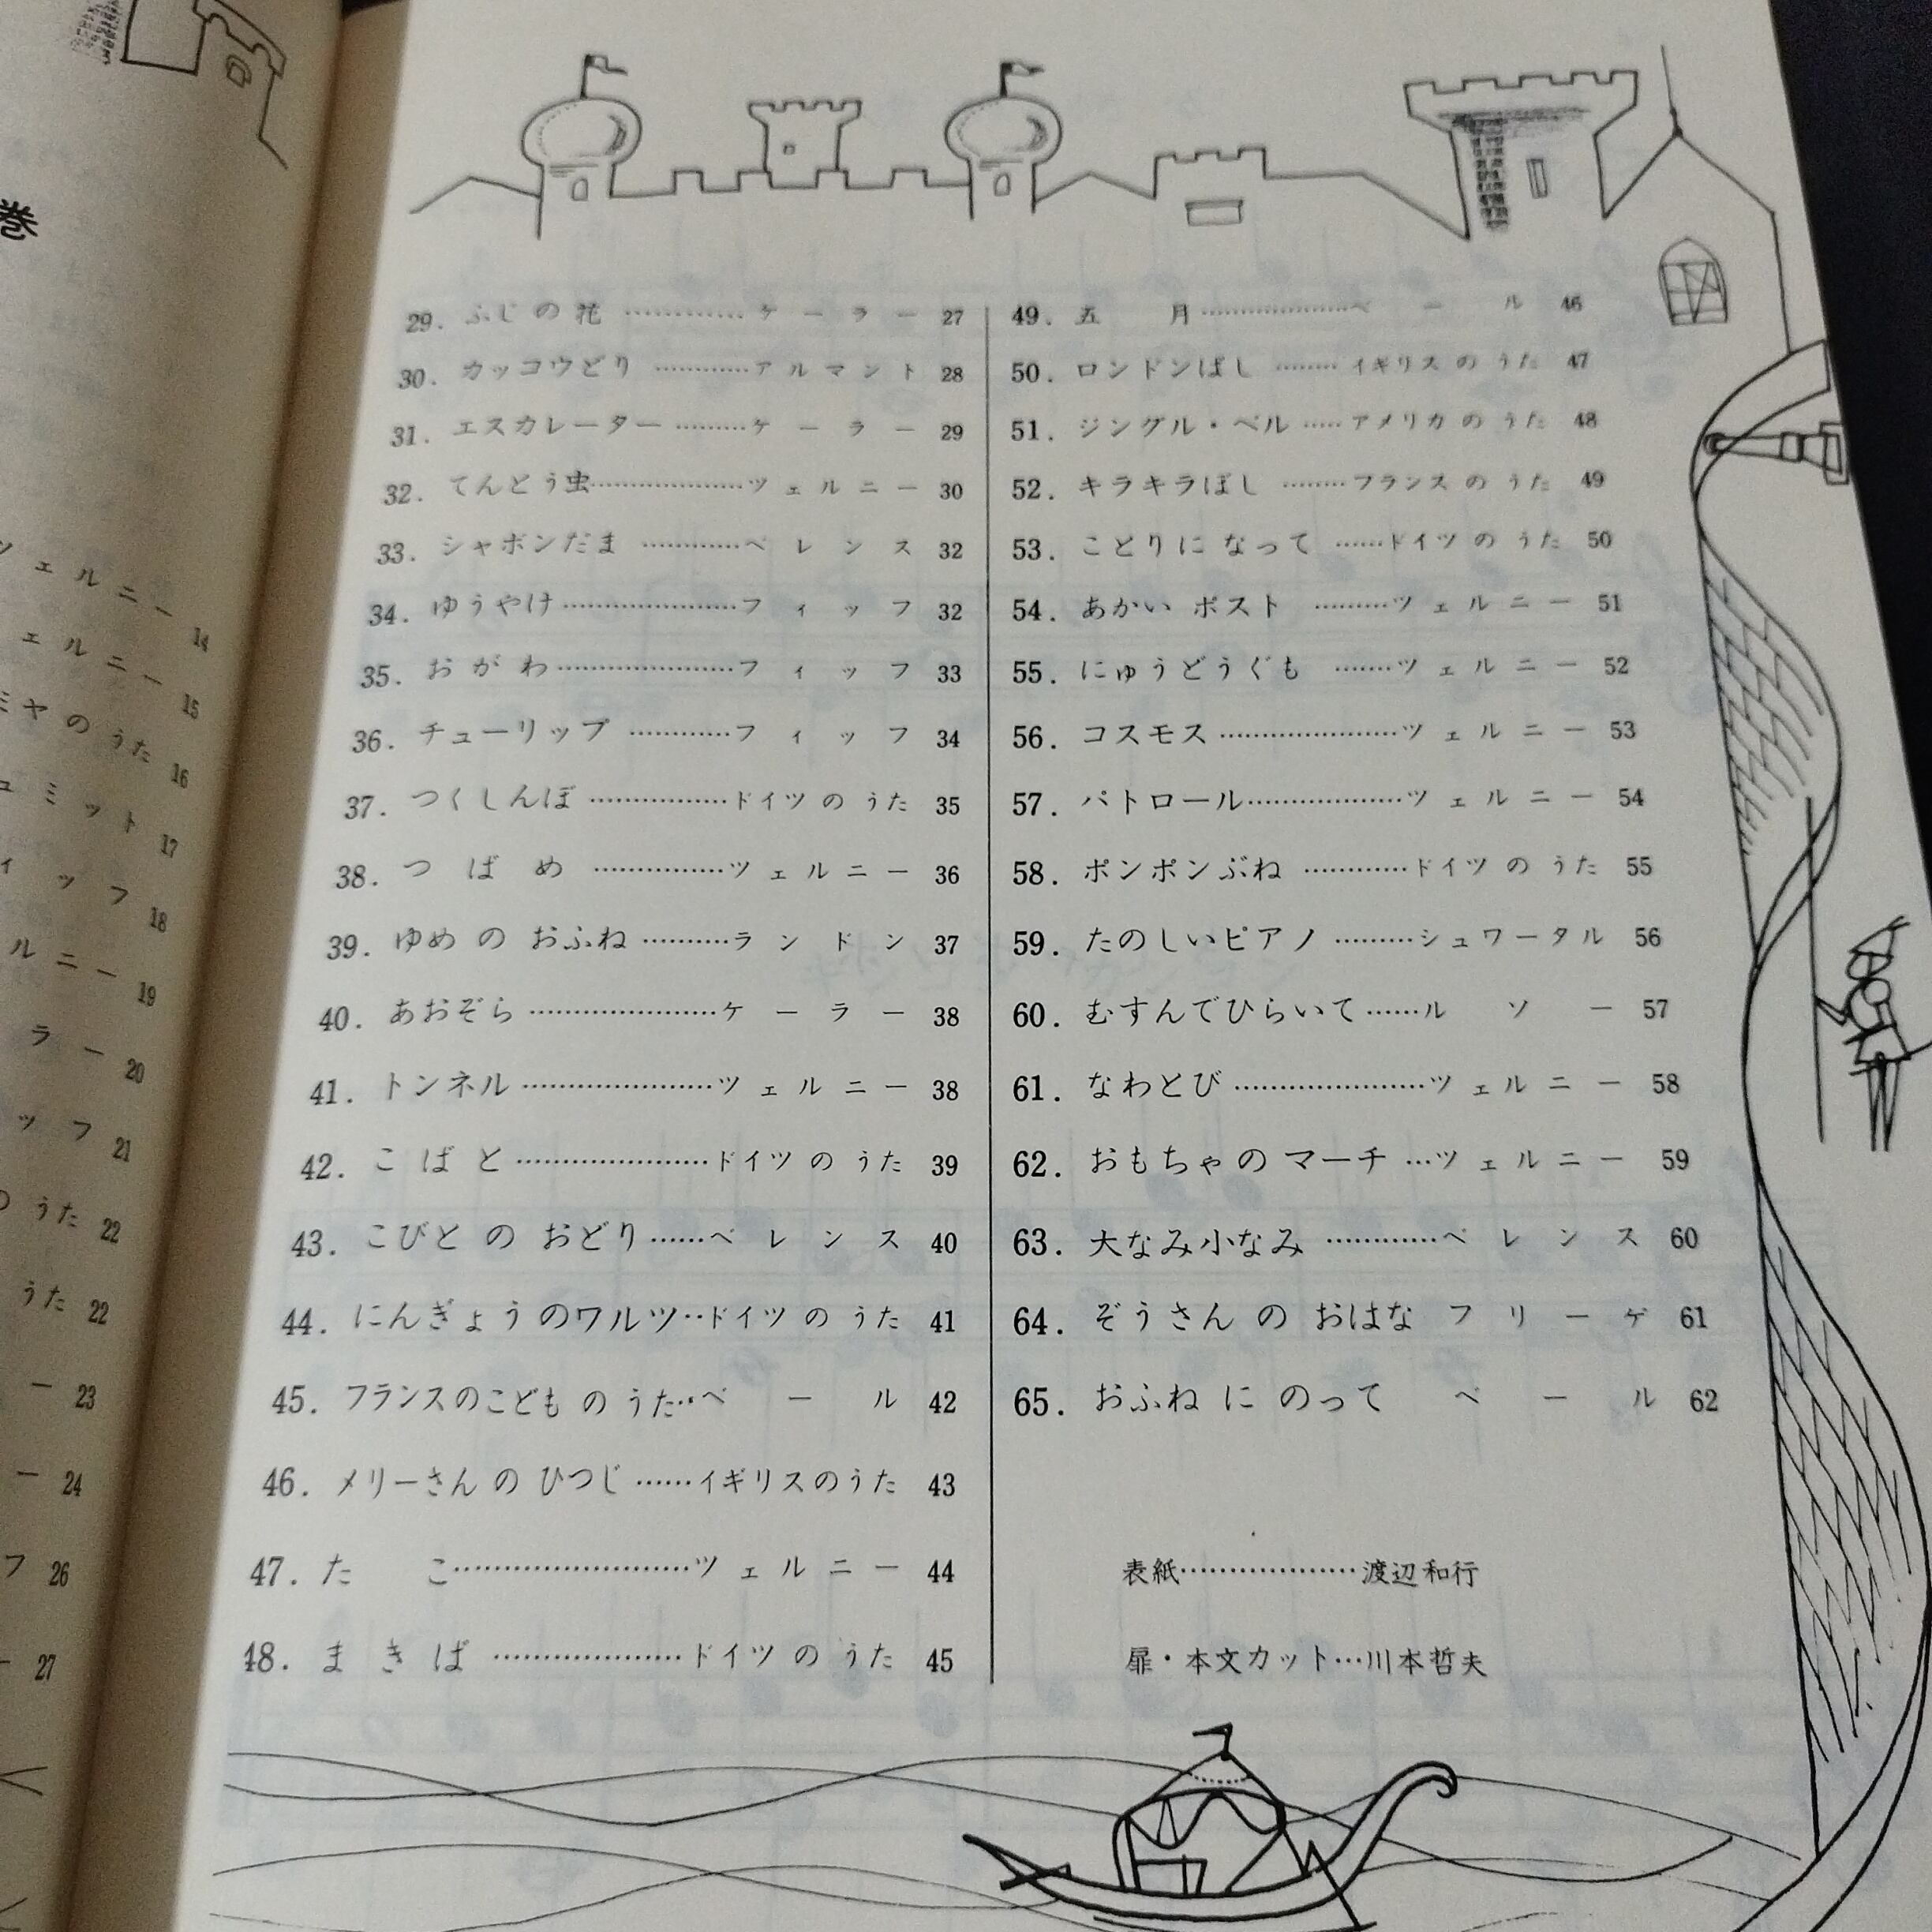 巻
ツェルニー 14
ェルニー 15
ミヤのうた 16
ュミット 17
ィッフ 18
ルニー 19
ラー 20
ッフ 21
のうた 22
うた 22
ー 23
ー 24
フ 26
ー 27
29. ふじの花 …………ケーラー 27
30. カッコウどり …………アルマント 28
31. エスカレーター ………ケーラー 29
32. てんとう虫………………ツェルニー 30
33. シャボンだま …………ベレンス 32
34. ゆうやけ…………………フィッフ 32
35. おがわ…………………フィッフ 33
36. チューリップ …………フィッフ 34
37. つくしんぼ ……………ドイツのうた 35
38. つばめ ……………ツェルニー 36
39. ゆめ の おふね ………ランドン 37
40. あおぞら …………………ケーラー 38
41. トンネル …………………ツェルニー 38
42. こばと …………………ドイツのうた 39
43. こびと の おどり……ベレンス 40
44. にんぎょう のワルツ‥ドイツのうた 41
45. フランスのこども の うた‥ベール 42
46. メリーさん の ひつじ ……イギリスのうた 43
47. たこ……………………ツェルニー 44
48. まきば …………………ドイツのうた 45
49. 五月………………ベール 46
50. ロンドンばし ………イギリスのうた 47
51. ジングル・ベル ……アメリカのうた 48
52. キラキラぼし ………フランスのうた 49
53. ことりに なって ……ドイツのうた 50
54. あかい ポスト ………ツェルニー 51
55. にゅうどうぐも ………ツェルニー 52
56. コスモス …………………ツェルニー 53
57. パトロール………………ツェルニー 54
58. ポンポンぶね …………ドイツのうた 55
59. たのしいピアノ ………シュワータル 56
60. むすんでひらいて……ルソー 57
61. なわとび …………………ツェルニー 58
62. おもちゃの マーチ …ツェルニー 59
63. 大なみ小なみ …………ベレンス 60
64. ぞうさん の おはな フリーゲ 61
65. おふね に のって ベール 62
表紙………………渡辺和行
扉・本文カット…川本哲夫